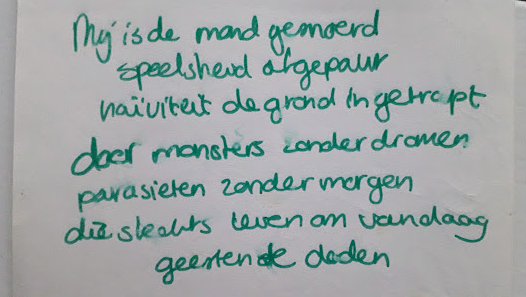 Mij is de mond gemoerd
speelsheid afgepakt
naïviteit de grond in getrapt
door monsters zonder dromen
parasieten zonder morgen
die slechts leven om vandaag
geesten te doden